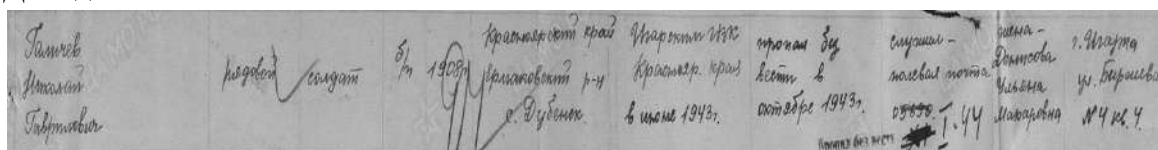 Галичев
Николай
Гаврилович
рядовой
солдат
б/п
1908г
Красноярский край
Ермаковский р-н
с. Дубенск.
Игарским ГВК
Краснояр. края
в июне 1943г.
пропал без
вести в
октябре 1943г.
служил -
полевая почта
05690.
I-44
пропал без вести
жена -
Донцова
Ульяна
Макаровна
г. Игарка
ул.
№4 кв. 4.